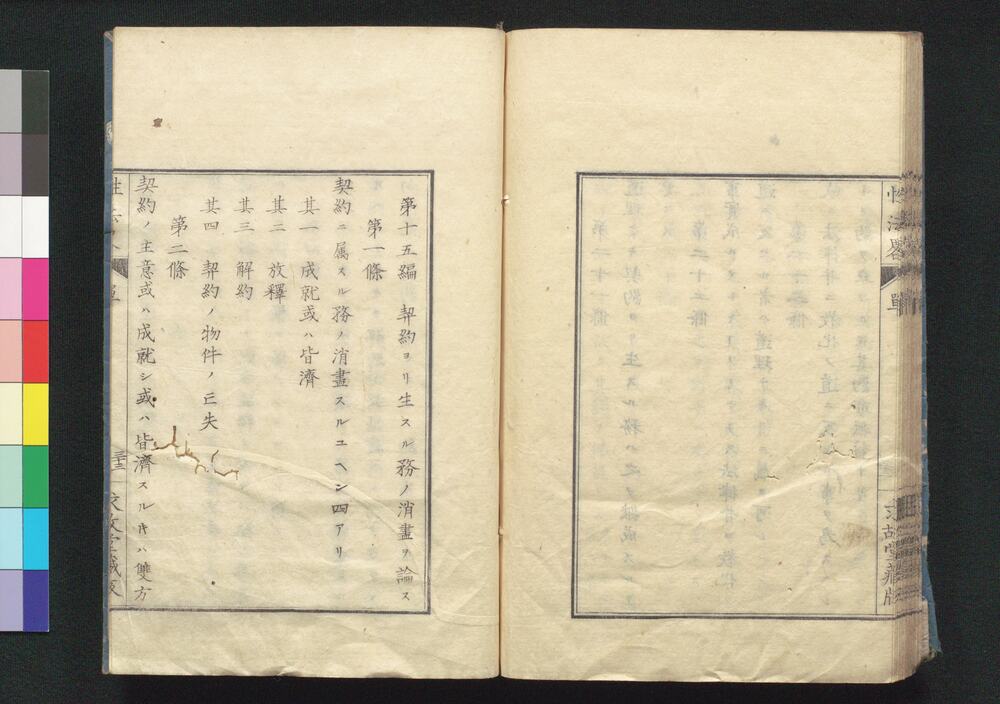 性法畧
單
第十五編 契約ヨリ生スル務ノ消盡ヲ論ス
第一條
契約ニ属スル務ノ消盡スルユヘン四アリ
其一 成就或ハ皆濟
其二 放釋
其三 解約
其四 契約ノ物件ノ亡失
第二條
契約ノ主意或ハ成就シ或ハ皆濟スル𬼀ハ雙方
單
三十三